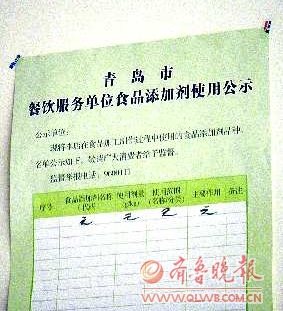 青岛市
餐饮服务单位食品添加剂使用公示
公示单位：
现将本店在食品加工制作过程中使用的食品添加剂品种、
名单公示如下，敬请广大消费者给予监督。
监督举报电话：
序号 食品添加剂名称（代码） 使用剂量（g/kg） 使用范围（名称/分类） 主要作用 备注
无 无 无 无
齐鲁晚报
WWW.QLWB.COM.CN